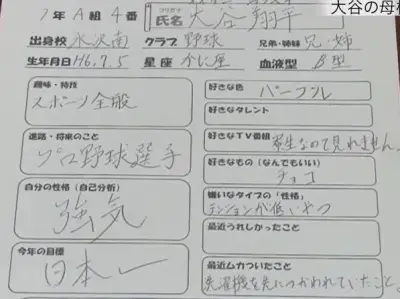 大谷の母校
1年A組4番 フリガナ 氏名 大谷翔平
出身校 水沢南 クラブ 野球 兄弟・姉妹 兄・姉
生年月日 H6.7.5 星座 かに座 血液型 B型
趣味・特技
スポーツ全般
進路・将来のこと
プロ野球選手
自分の性格(自己分析)
強気
今年の目標
日本一
好きな色
パープル
好きなタレント
好きなTV番組
寮生なので見れません。
好きなもの(なんでもいい)
チョコ
嫌いなタイプの「性格」
テンションが低いやつ
最近うれしかったこと
最近ムカついたこと
洗濯機を先につかわれていたこと。